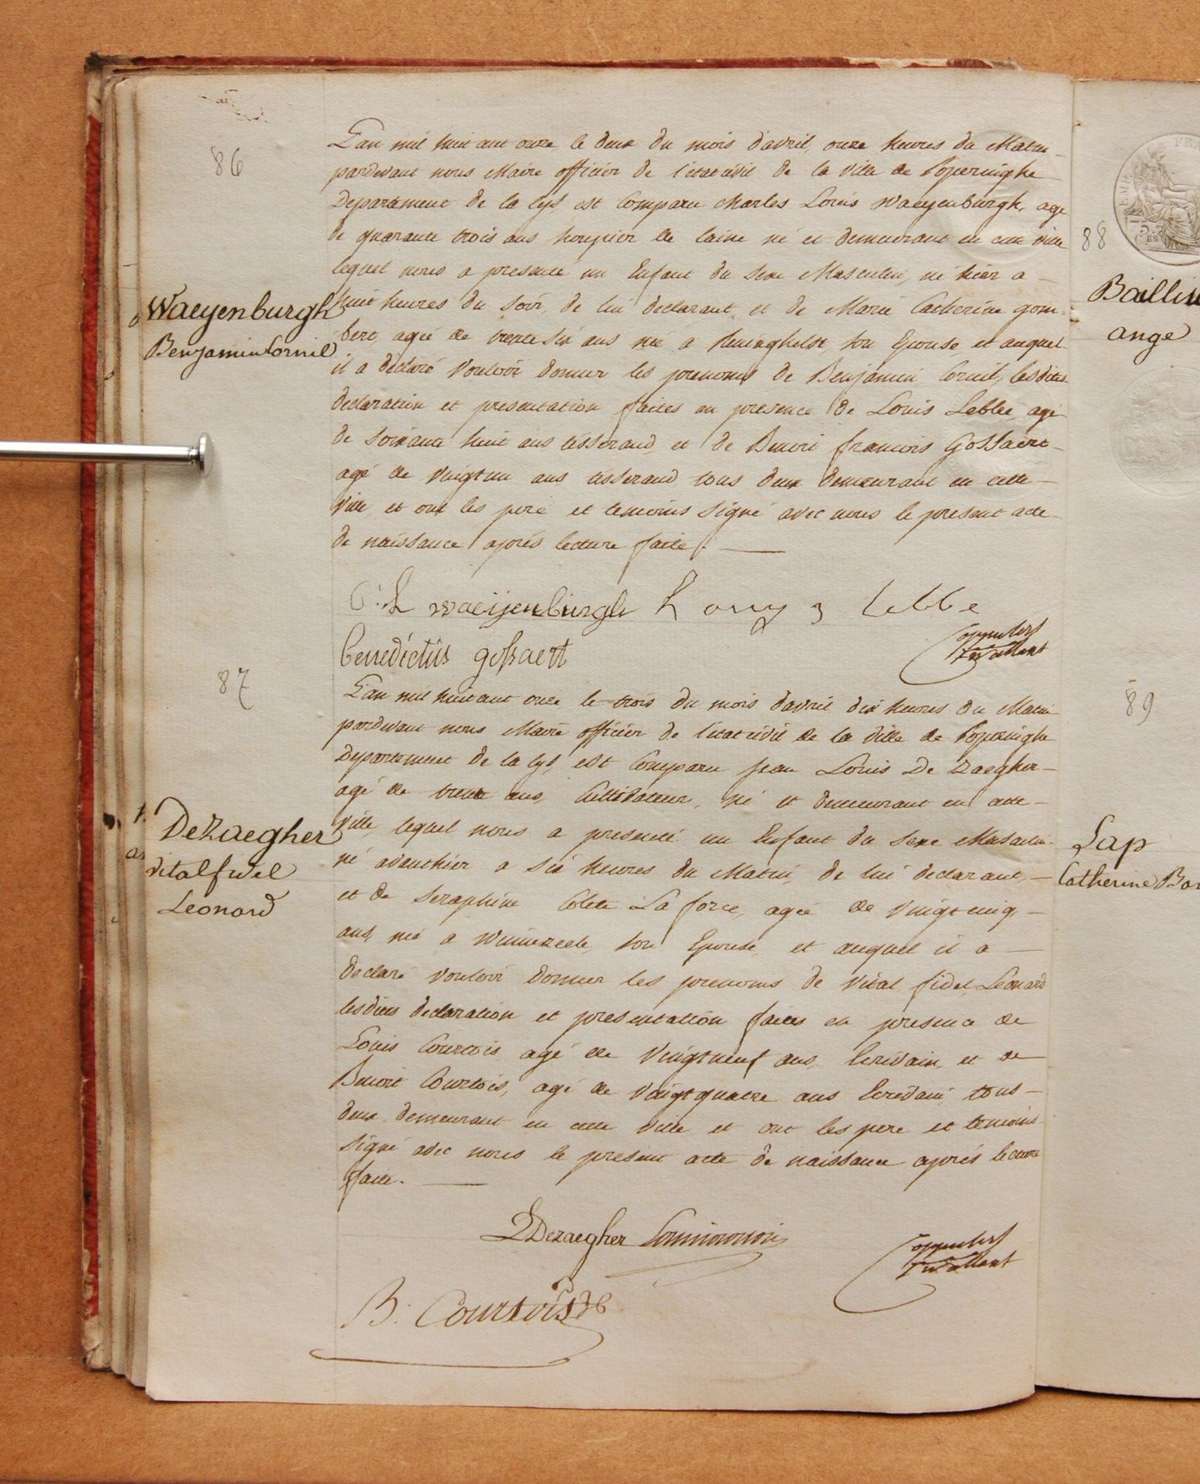 86
L'an mil huit cent onze le deux du mois d'avril, onze heures du Matin
pardevant nous Maire officier de l'etat civil de la ville de Poperinghe
Departement de la Lys est comparu Charles Louis Waeyenburgh, agé
de quarante trois ans houpier de laine né et demeurant en cette ville
lequel nous a presenté un Enfant du sexe Masculin, né hier a
huit heures du soir, de lui declarant, et de Marie Catherine Gom-
bert, agée de trente six ans née a son Epouse, et auquel
il a declaré vouloir donner les prenoms de Benjamin Cornil, lesdites
declaration et presentation faites en presence de Louis Lebbe, agé
de soixante huit ans tisserand, et de Benoit françois Gossaert
agé de vingt un ans tisserand tous deux demeurant en cette
ville, et ont les pere et temoins signé avec nous le present acte
de naissance après lecture faite.
Waeyenburgh
Benjamin Cornil
C. L waeijenburgh Louys lebbe
benedictus gossaert
87
L'an mil huit cent onze le trois du mois d'avril dix heures du Matin
pardevant nous Maire officier de l'etat civil de la ville de Poperinghe
Departement de la Lys est comparu Jean Louis De Zaegher
agé de trente ans, Cultivateur, né et demeurant en cette
ville, lequel nous a presenté un Enfant du sexe Masculin
né avanthier a six heures du Matin, de lui declarant,
et de Seraphine Colete La force, agée de vingtcinq
ans, née a Winnezeele, son Epouse, et auquel il a
declaré vouloir donner les prenoms de Vital fidel Leonard
lesdites declaration et presentation faites en presence de
Louis Courtois agé de vingtneuf ans, Ecrivain, et de
Benoit Courtois, agé de vingtquatre ans Ecrivain, tous
deux demeurant en cette ville et ont les pere et temoins
signé avec nous le present acte de naissance après lecture
faite.
DeZaegher
vital fidel
Leonard
Dezaegher Louis Courtois
B. Courtois
88
Bailleu
ange
89
Lap
Catherine Bar